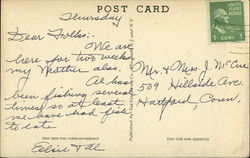 Thursday
POST CARD
Dear Folks:-
We are
here for two weeks
my Mother also.
Al has
been fishing several
times so at least
we have had fish
to eate
Elsie & Al
THIS SIDE FOR CORRESPONDENCE
Mr. & Mrs. J. McCue
509 Hillside Ave.
Hartford, Conn.
THIS SIDE FOR ADDRESS
1 CENT 1